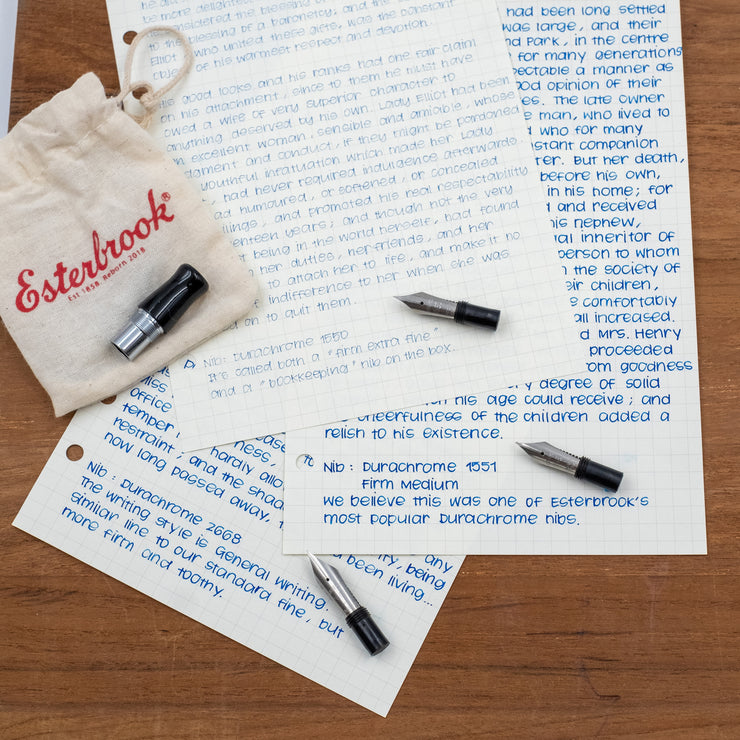 be more delightful
considered the blessing of
to the blessing of a baronetcy; and the
Elliot, who united these gifts, was the constant
object of his warmest respect and devotion.
His good looks and his ranks had one fair claim
on his attachment, since to them he must have
owed a wife of very superior character to
anything deserved by his own. Lady Elliot had been
an excellent woman, sensible and amiable, whose
judgment and conduct, if they might be pardoned
youthful infatuation which made her Lady
had never required indulgence afterwards.
had humoured, or softened, or concealed
ilings, and promoted his real respectability
enteen years; and though not the very
t being in the world herself, had found
n her duties, her friends, and her
to attach her to life, and make it no
f indifference to her when she was
d on to quit them.
Nib: Durachrome 1550
It's called both a "firm extra fine"
and a "bookkeeping" nib on the box.
had been long settled
was large, and their
nd Park, in the centre
for many generations
pectable a manner as
ood opinion of their
es. The late owner
e man, who lived to
d who for many
nstant companion
ter. But her death,
before his own,
in his home; for
d and received
his nephew,
al inheritor of
person to whom
n the society of
eir children,
e comfortably
all increased.
d Mrs. Henry
proceeded
om goodness
ry degree of solid
h his age could receive; and
cheerfulness of the children added a
relish to his existence.
Nib: Durachrome 1551
Firm Medium
We believe this was one of Esterbrook's
most popular Durachrome nibs.
Esterbrook®
Est 1858. Reborn 2018
Miss
office
temper
restraint; and the shad
now long passed away,
any
ty, being
d been living...
Nib: Durachrome 2668
The writing style is General Writing.
Similar line to our standard fine, but
more firm and toothy.